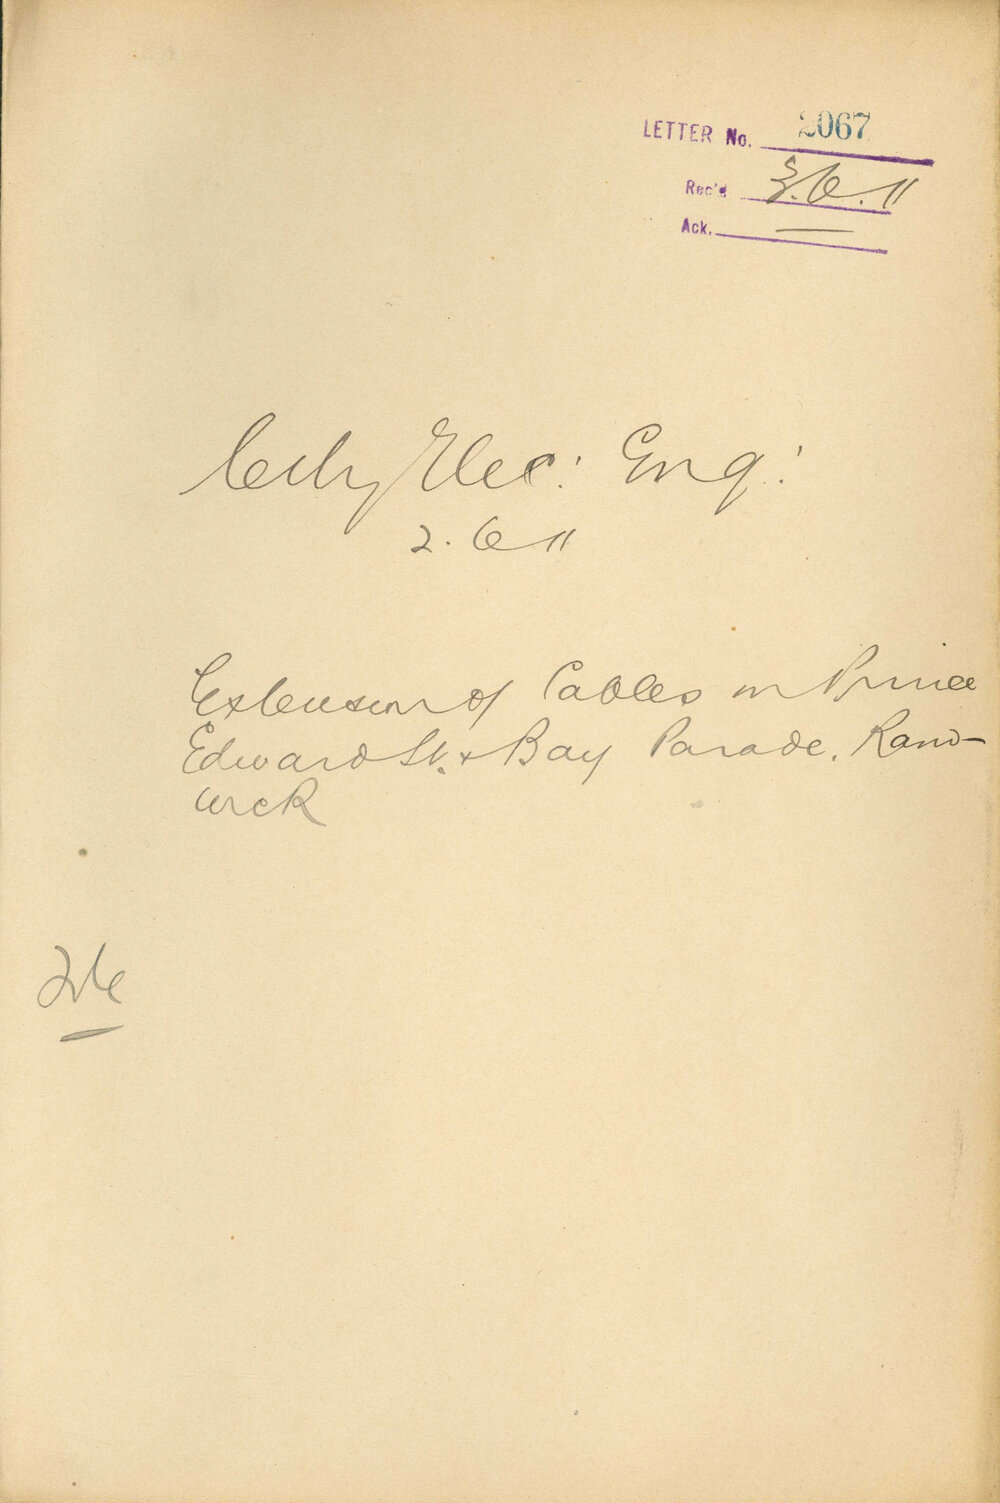 LETTER No. 2067
Rec'd 3.6.11
Ack.
City Elec: Eng:
2.6.11
Extension of Cables in Prince
Edward St. & Bay Parade, Rand-
wick